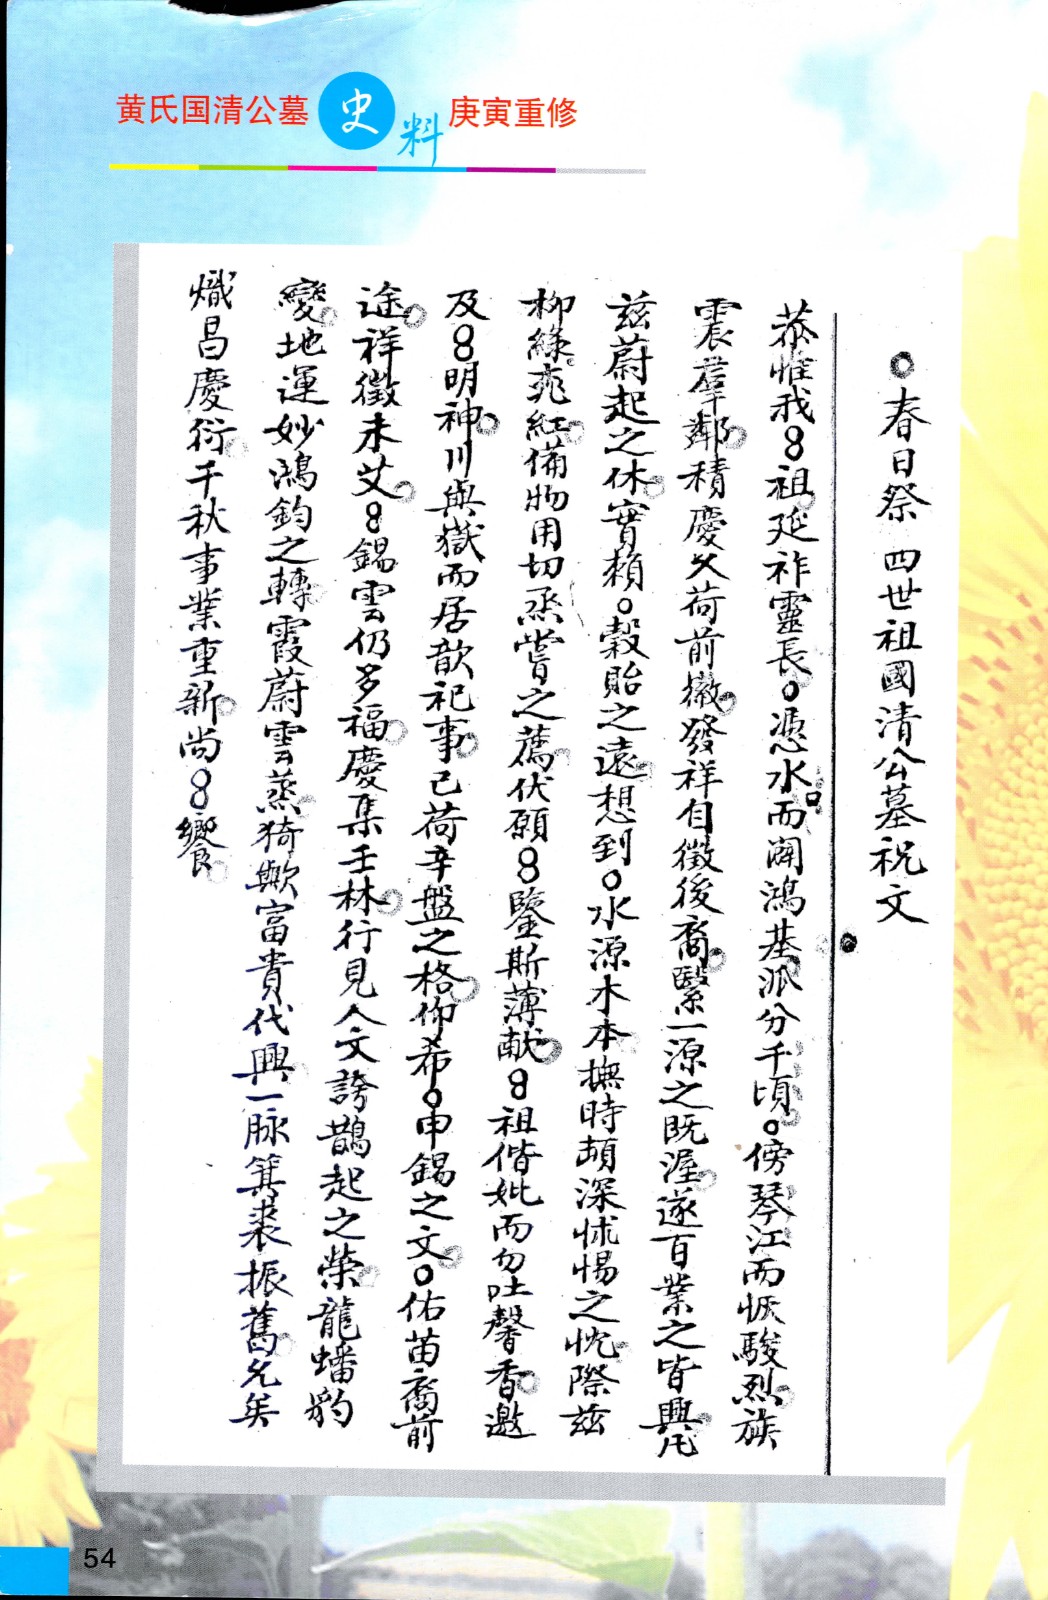 黄氏国清公墓 史料 庚寅重修
○春日祭四世祖國清公墓祝文
恭惟我8祖延祚靈長。憑水而開鴻基派分千頃。傍琴江而恢駿烈族
震羣鄰積慶久荷前徽發祥自徵後裔繄一源之既渥遂百業之皆興凡
兹蔚起之休實賴。穀貽之遠想到。水源木本撫時頗深怵惕之忱際兹
柳綠桃紅備物用切烝嘗之薦伏願8鑒斯薄献8祖偕妣而勿吐馨香邀
及8明神川與嶽而居歆祀事已荷辛盤之格仰希。申錫之文。佑苗裔前
途祥徵未艾8錫雲仍多福慶集壬林行見人文誇鵲起之榮龍蟠豹
變地運妙鴻鈞之轉霞蔚雲蒸猗歟富貴代興一脉箕裘振舊允矣
熾昌慶衍千秋事業重新尚8饗
54